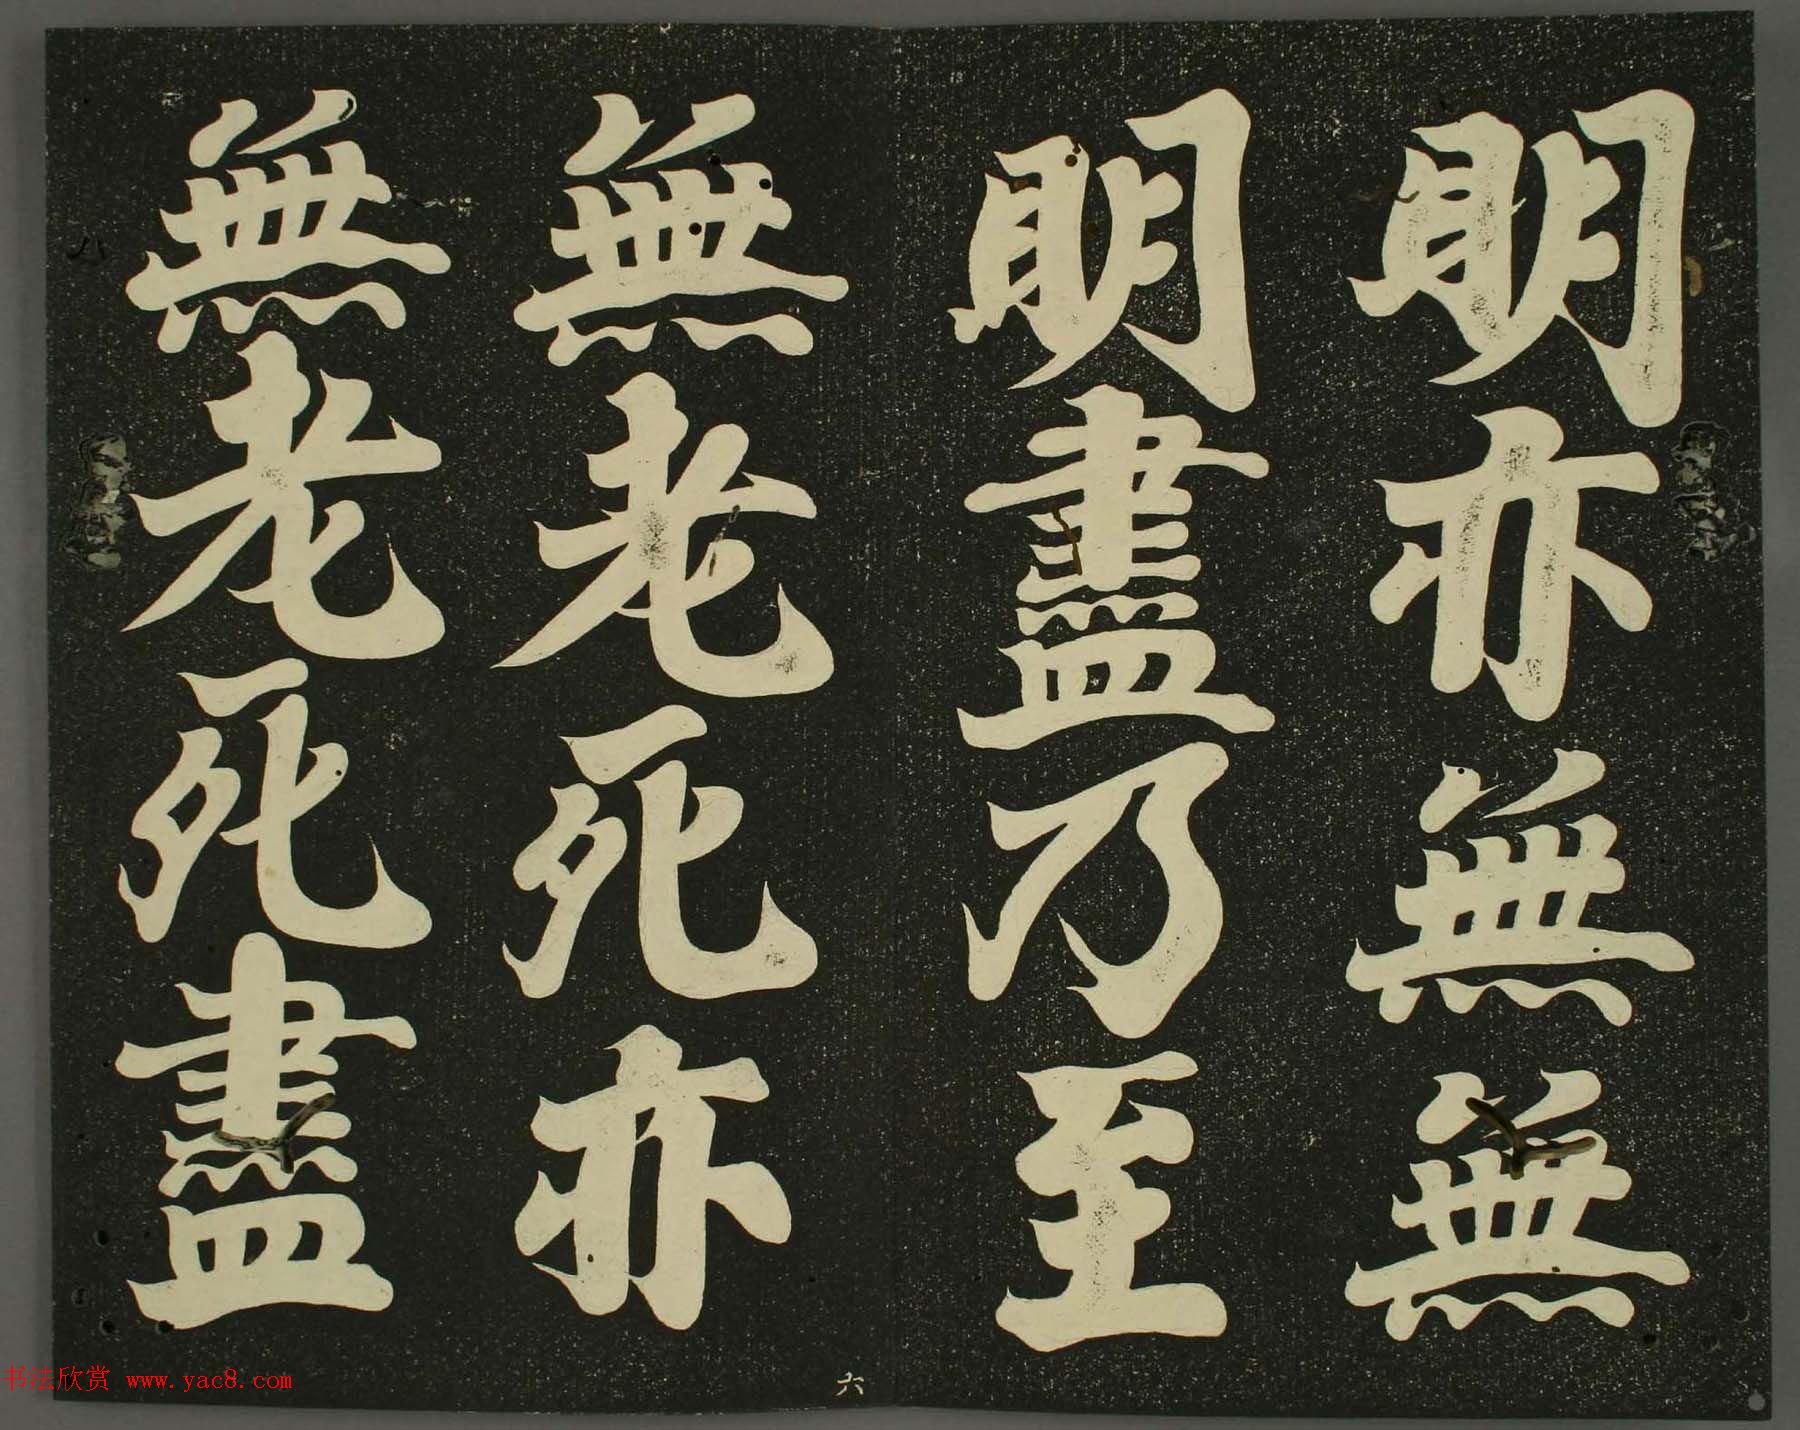 明亦無無
明盡乃至
無老死亦
無老死盡
六
书法欣赏 www.yac8.com